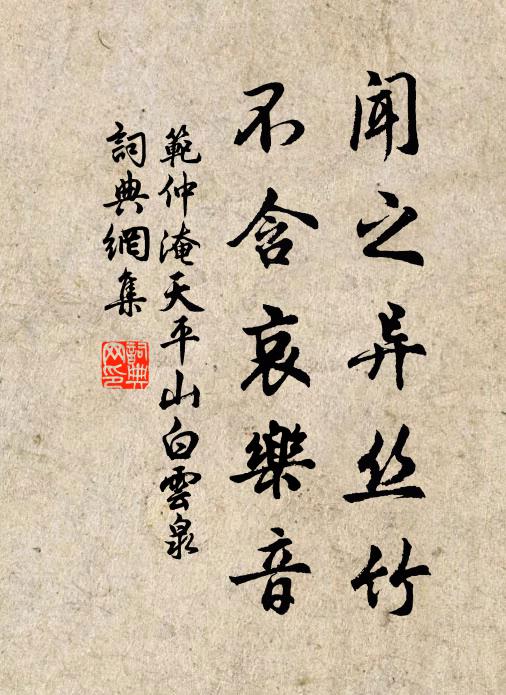 闻之异丝竹
不含哀樂音
範仲淹天平山白雲泉
詞典網集
詞典网印